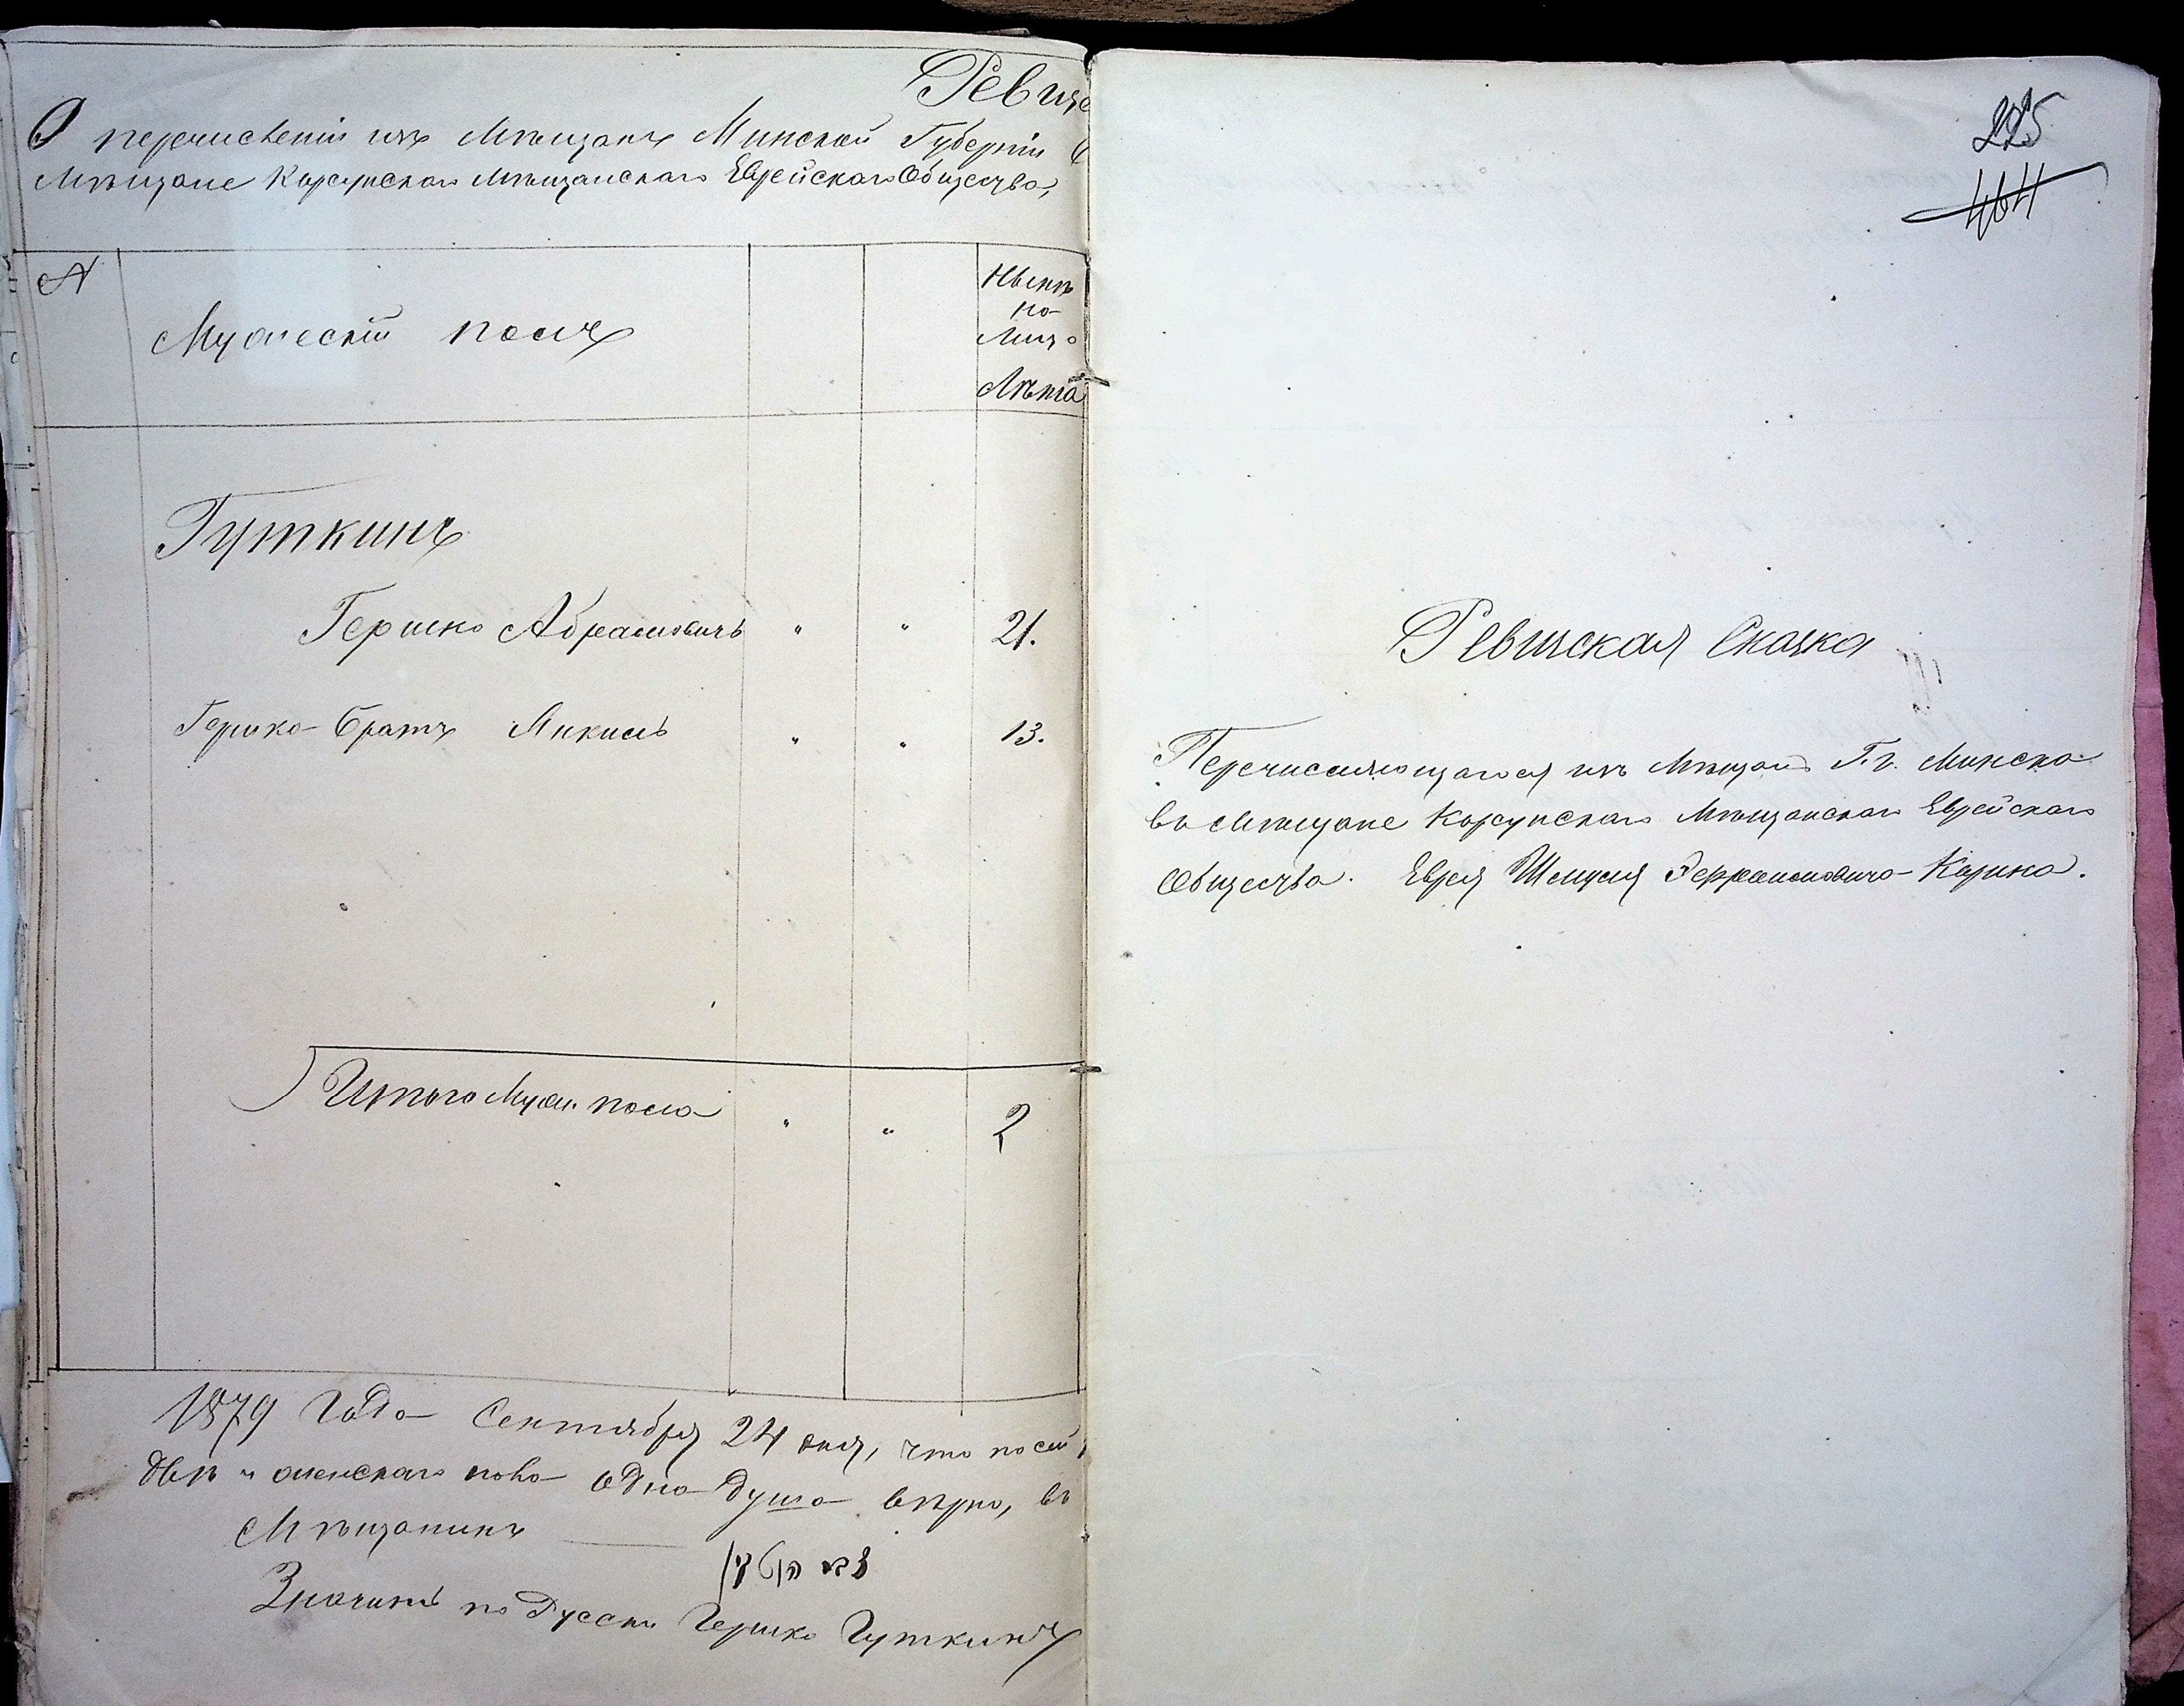 Ревиз
О перечисленіи изъ Мѣщанъ Минской Губерніи
Мѣщане Корсунскаго Мѣщанскаго Еврейскаго Общества,
№
Мужескій полъ
Нынѣ
на
лицо
Лѣта
Гуткинъ
Гершко Абрамовичъ " " 21.
Гершко братъ Янкель " " 13.
Итого Муж. пола " " 2
1879 Года Сентября 24 дня, что по сей
двѣ и женскаго пола одна душа вѣрно, въ
Мѣщанинъ
Значитъ по Русски Гершко Гуткинъ
225
464
Ревизская Сказка
Перечисляющагося изъ Мѣщанъ Г. г. Минска
въ Мѣщане Корсунскаго Мѣщанскаго Еврейскаго
Общества. Еврея Шмуля